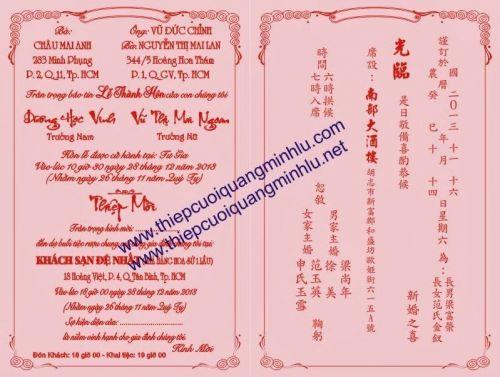 Bà:
CHÂU MAI ANH
283 Minh Phụng
P. 2, Q.11, Tp. HCM
Ông: VŨ ĐỨC CHỈNH
Bà: NGUYỄN THỊ MAI LAN
344/5 Hoàng Hoa Thám
P. 1, Q.GV, Tp. HCM
Trân trọng báo tin Lễ Thành Hôn của con chúng tôi
Dương Học Vinh
Trưởng Nam
Vũ Thị Mai Ngoan
Trưởng Nữ
Hôn lễ được cử hành tại: Tư Gia
Vào lúc 10 giờ 30 ngày 28 tháng 12 năm 2013
(Nhằm ngày 26 tháng 11 năm Quý Tỵ)
Thiệp Mời
Trân trọng kính mời:
đến dự buổi tiệc rượu chung vui cùng gia đình chúng tôi tại:
KHÁCH SẠN ĐỆ NHẤT
18 Hoàng Việt, P. 4, Q. Tân Bình, Tp. HCM
Vào lúc 18 giờ 00 ngày 28 tháng 12 năm 2013
(Nhằm ngày 26 tháng 11 năm Quý Tỵ)
Sự hiện diện của:
là niềm vinh hạnh cho gia đình chúng tôi
Kính Mời
Đón Khách: 18 giờ 00 - Khai tiệc: 19 giờ 00
www.thiepcuoiquangminhlu.com
www.thiepcuoiquangminhlu.net
國 二0一三 十一 十六
謹訂於 曆 年 月 日 星期六 為:
農 癸巳 十 十四
長男梁富榮
長女范氏金釵
新婚之喜
是日敬備喜酌恭候
光臨
梁尚年
男家主婚 徐美
恕敬
范玉英
女家主婚
申氏玉雪
鞠躬
席設: 南部大酒樓 胡志市新富郡和盛坊歐姬街六一五A號
時間 六時拱候
七時入席